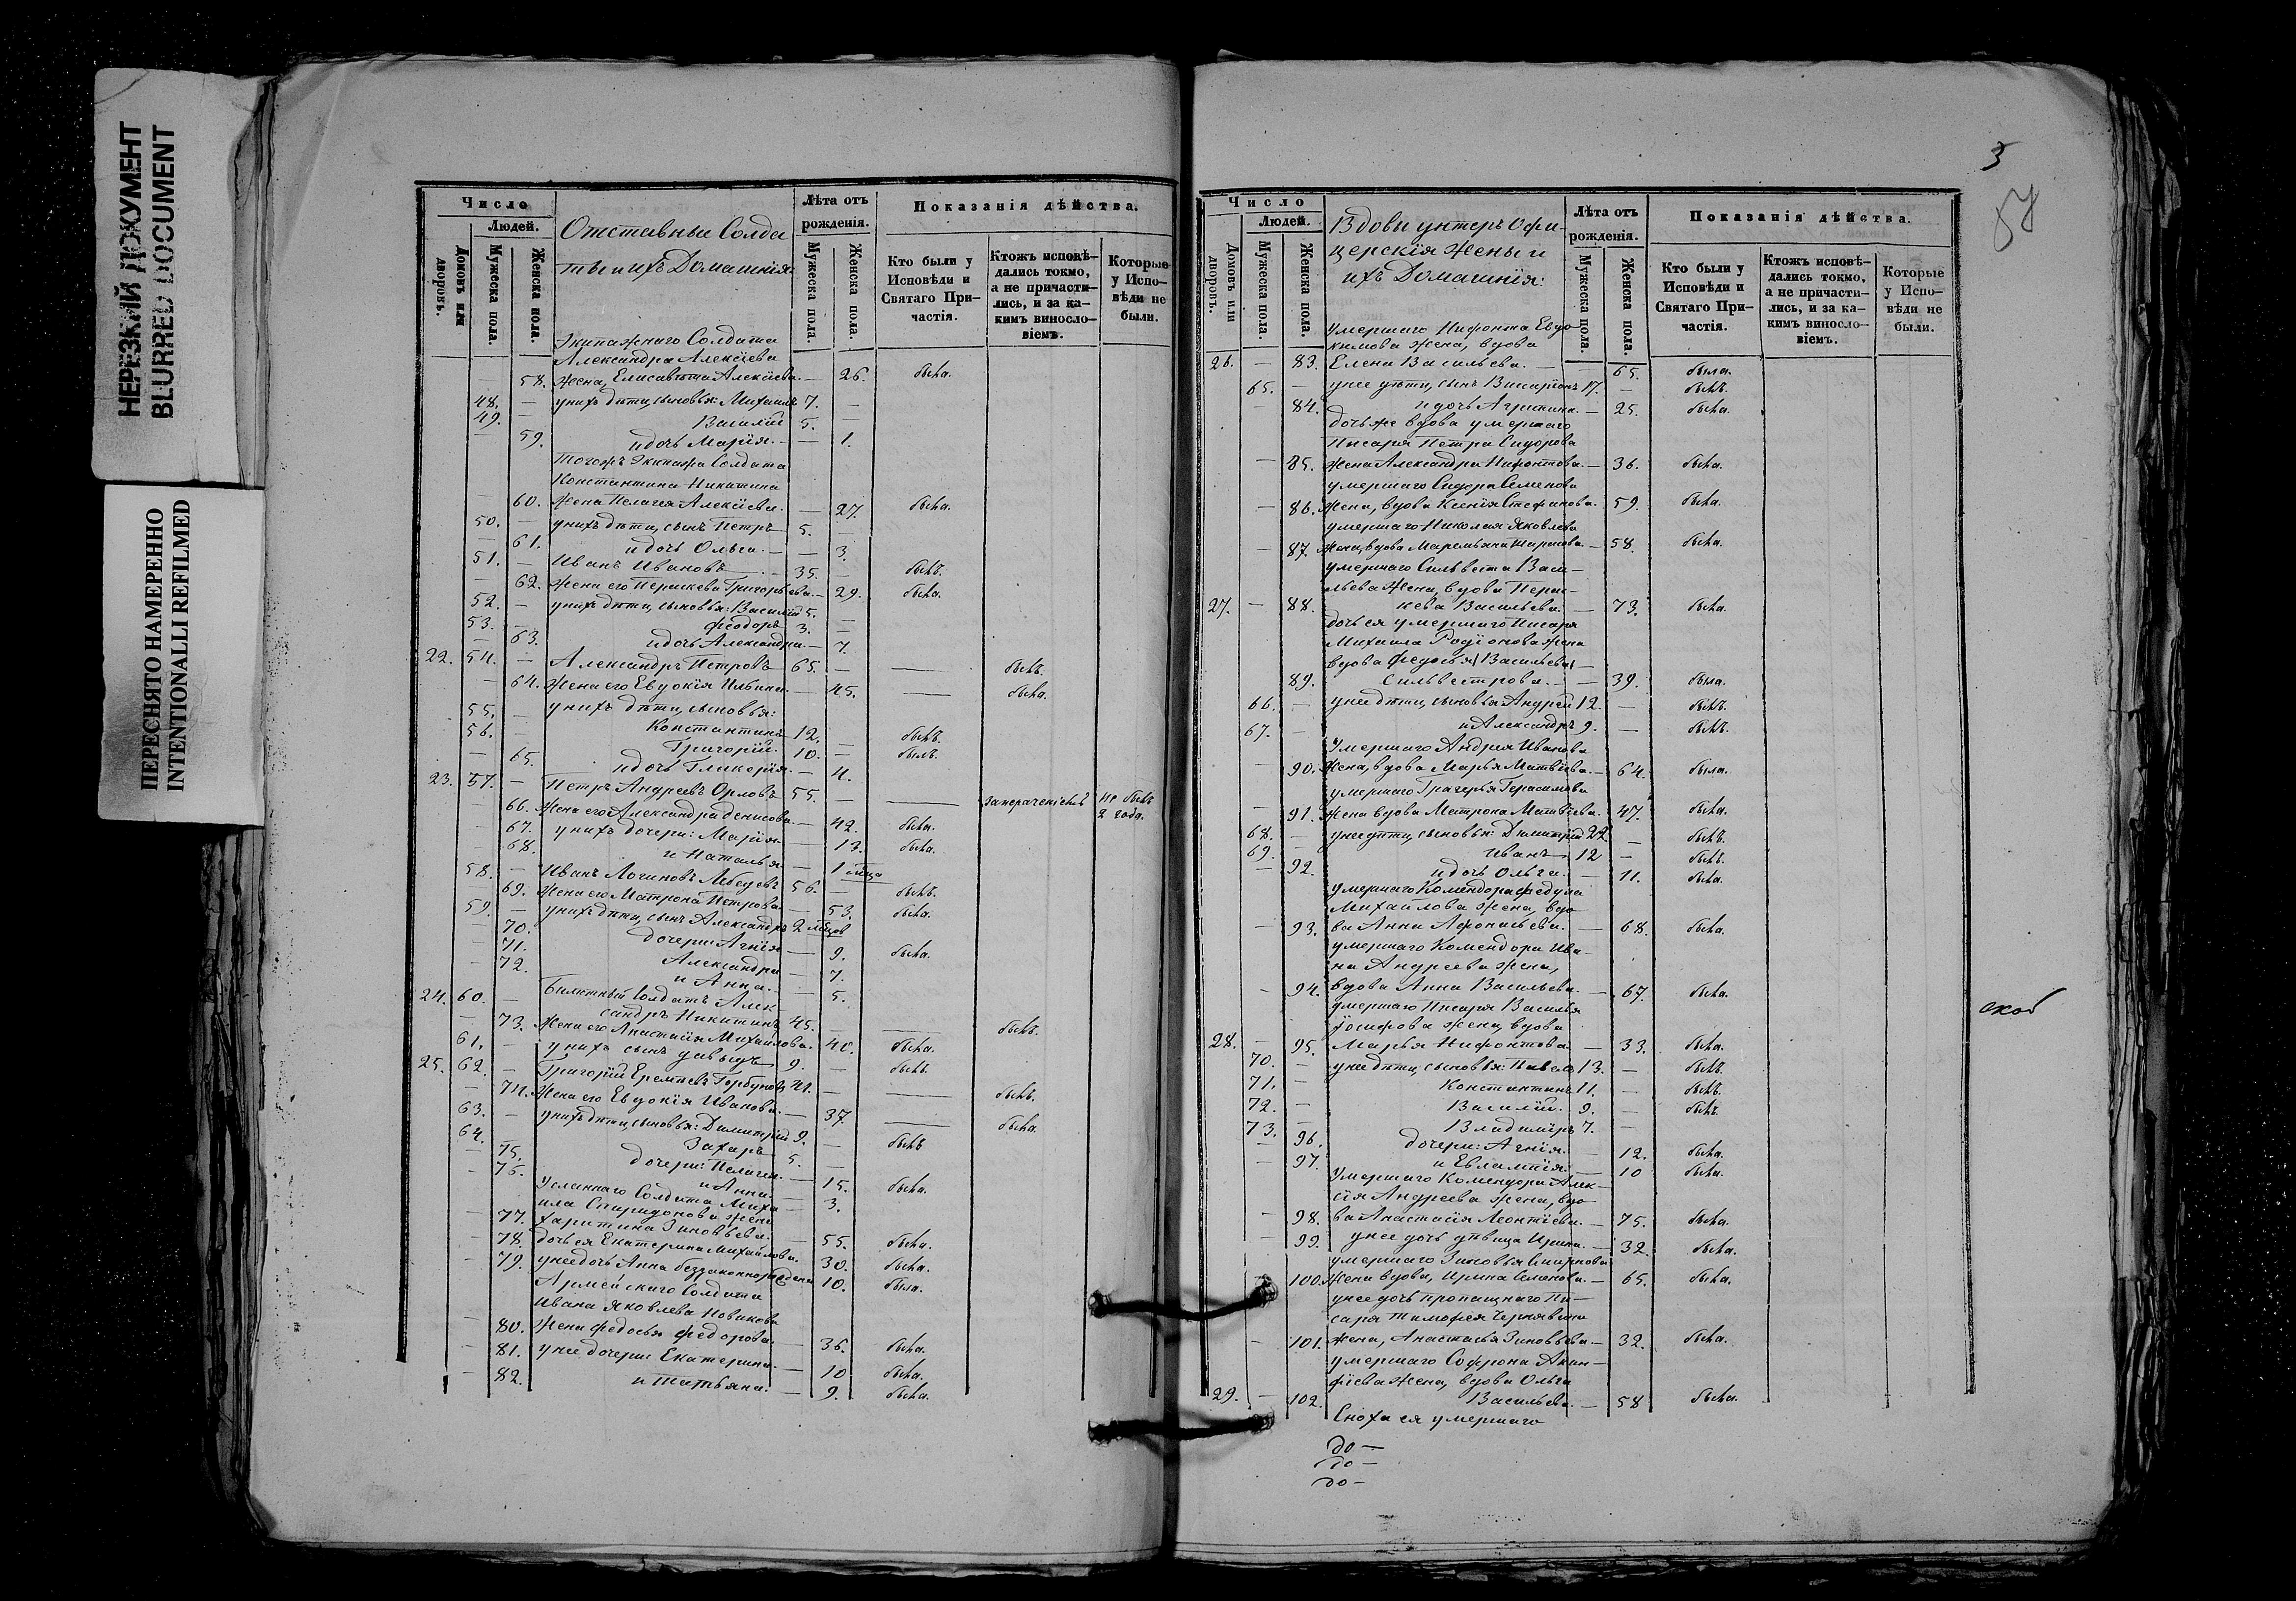 НЕРЕЗКИЙ ДОКУМЕНТ
BLURRED DOCUMENT
ПЕРЕСНЯТО НАМЕРЕННО
INTENTIONALLI REFILMED
Число
Людей.
Домовъ или дворовъ.
Мужеска пола.
Женска пола.
Отставные Солда
ты и ихъ Домашнія:
Лѣта отъ рожденія.
Мужеска пола.
Женска пола.
Показанія дѣйства.
Кто были у Исповѣди и Святаго При-частія.
Ктожъ исповѣ-дались токмо, а не причасти-лись, и за ка-кимъ виносло-віемъ.
Которые у Испо-вѣди не были.
Экипажнаго Солдата
Александра Алексіева
— 58. жена, Елисавета Алексіева. — 26. была.
48. — у нихъ дѣти, сыновья: Михаилъ 7. —
49. — Василій 5. —
— 59. и дочь Марія. — 1.
Тогожъ Экипажа Солдата
Константина Никитина
— 60. жена Пелагея Алексіева. — 27 была.
50. — у нихъ дѣти, сынъ Петръ 5. —
— 61. и дочь Ольга. — 3.
51. — Иванъ Ивановъ 35. — былъ.
— 62. жена его Параскева Григорьева. — 29. была.
52. — у нихъ дѣти, сыновья: Василій 5. —
53. — Феодоръ 3. —
— 63. и дочь Александра. — 7.
22. 54. — Александръ Петровъ 65. — — былъ.
— 64. жена его Евдокія Ильина. — 45. — была.
у нихъ дѣти, сыновья:
55. — Константинъ 12. — былъ.
56. — Григорій. 10. — былъ.
— 65. и дочь Гликерія. — 4.
23. 57. — Петръ Андреевъ Орловъ 55. — — Не былъ 2 года.
— 66. жена его Александра Денисова. — 42. была.
— 67. у нихъ дочери: Марія — 13. была.
— 68. и Наталья — 1
58. — Иванъ Логиновъ Лебедевъ 56. — былъ.
— 69. жена его Матрона Петрова — 53. была.
59. — у нихъ дѣти, сынъ Александръ 2
— 70. дочери: Агнія — 9. была.
— 71. Александра — 7.
— 72. и Анна. — 5.
24. 60. — Билетный Солдатъ Алек-
сандръ Никитинъ 45. — — былъ.
— 73. жена его Анастасія Михайлова. — 40. была.
61. — у нихъ сынъ Давыдъ 9. — былъ.
25. 62. — Григорій Еремѣевъ Горбуновъ 41. — — былъ.
— 74. жена его Евдокія Иванова. — 37. — была.
63. — у нихъ дѣти, сыновья: Димитрій 9. — былъ
64. — Захаръ 5. —
— 75. дочери: Пелагея. — 15. была.
— 76. и Анна. — 3.
Усланнаго Солдата Миха-
ила Спиридонова жена
— 77. Харитина Зиновьева. — 55. была.
— 78. дочь ея Екатерина Михайлова. 30. была.
— 79. у нее дочь Анна беззаконнорождена 10. была.
Армейскаго Солдата
Ивана Яковлева Новикова
— 80. жена Федосья Федорова. — 36. была.
— 81. у нее дочери: Екатерина. — 10 была.
— 82. и Татьяна. — 9. была.
3
Число
Людей.
Домовъ или дворовъ.
Мужеска пола.
Женска пола.
Вдовы унтеръ офи-
церскія жены и
ихъ Домашнія:
Лѣта отъ рожденія.
Мужеска пола.
Женска пола.
Показанія дѣйства.
Кто были у Исповѣди и Святаго При-частія.
Ктожъ исповѣ-дались токмо, а не причасти-лись, и за ка-кимъ виносло-віемъ.
Которые у Испо-вѣди не были.
Умершаго Нифонта Евдо-
кимова жена, вдова
26. — 83. Елена Васильева. — 65. была.
65. — у нее дѣти, сынъ Висаріонъ 17. — былъ.
— 84. и дочь Агрипина. — 25. была.
дочь же вдова умершаго
Писаря Петра Сидорова
— 85. жена Александра Нифонтова. — 36. была.
умершаго Сидора Семенова
— 86. жена, вдова Ксенія Стефанова. 59. была.
умершаго Николая Яковлева
— 87. жена, вдова Маремьяна — 58. была.
умершаго Сильвестра Васи-
льева жена, вдова Парас-
27. — 88. кева Васильева. — 73. была.
дочь ея умершаго Писаря
Михаила Родіонова жена
вдова Федосья (Васильева)
89. Сильвестрова. — 39. была.
66. — у нее дѣти, сыновья Андрей 12. — былъ.
67. — и Александръ 9. — былъ.
Умершаго Андрея Иванова
— 90. жена, вдова Марья Матвіева. — 64. была.
умершаго Григорья Герасимова
91. жена вдова Матрона Матвіева. 47. была.
68. — у нее дѣти, сыновья: Димитрій 22 — былъ.
69. — Иванъ 12 — былъ.
— 92. и дочь Ольга. — 11. была.
умершаго Комендора Федула
Михайлова жена, вдо-
— 93. ва Анна Афонасьева. — 68. была.
умершаго Комендора Ива-
на Андреева жена,
— 94. вдова Анна Васильева. — 67. была.
умершаго Писаря Василья
Іосифова жена, вдова
28. — 95. Марья Нифонтова — 33. была.
70. — у нее дѣти, сыновья: Павелъ 13. — былъ.
71. — Константинъ 11. — былъ.
72. — Василій. 9. — былъ.
73. — Владиміръ 7. —
— 96. дочери: Агнія. — 12. была.
— 97. и Евлампія. — 10 была.
Умершаго Комендора Алек-
сія Андреева жена, вдо-
— 98. ва Анастасія Леонтіева. — 75. была.
— 99. у нее дочь дѣвица Ирина. — 32. была.
умершаго Зиновья Смирнова
— 100. жена вдова, Ирина Семенова. — 65. была.
у нее дочь пропащаго Пи-
саря Тимофея Чернявина
— 101. жена, Анастасья Зиновьева — 32. была.
умершаго Софрона Акин-
фіева жена, вдова Ольга
29. — 102. Васильева. — 58 была.
Сноха ея умершаго
до —
до —
до —